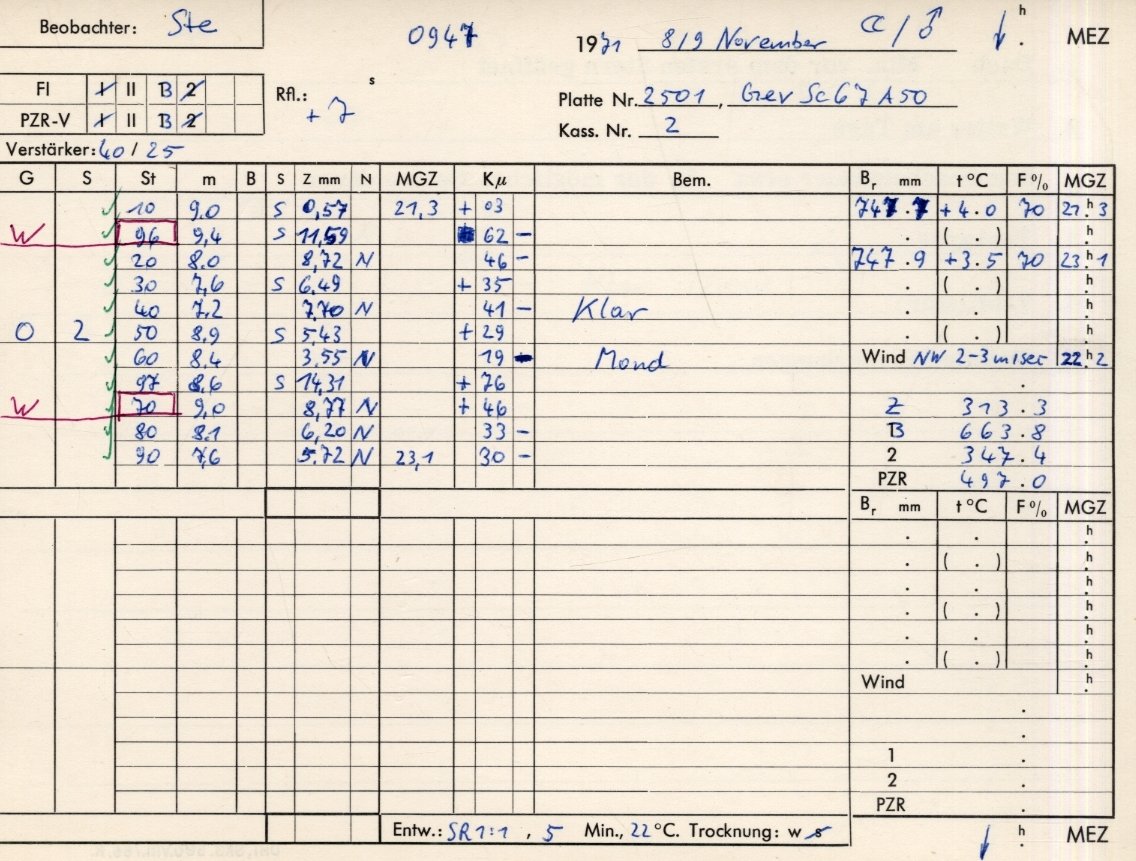 Beobachter: Ste 0947 1971 8/9 November ☾ / ♂ ↓ h . MEZ
FI I II B 2 Rfl.: + 7 s Platte Nr. 2501, Gev Sc67 A50
PZR-V I II B 2 Kass. Nr. 2
Verstärker: 40 / 25
G S St m B S Z mm N MGZ Kµ Bem. Br mm t °C F % MGZ
10 9.0 S 0,57 21,3 + 03 747.7 +4.0 70 21.h3
W 96 9,4 S 11,59 62 − . ( . ) .h
20 8.0 8,72 N 46 − 747.9 +3.5 70 23.h1
30 7,6 S 6.49 + 35 . ( . ) .h
40 7,2 7.70 N 41 − Klar . . .h
O 2 50 8,9 S 5,43 + 29 . ( . ) .h
60 8,4 3.55 N 19 − Mond Wind NW 2-3 m/sec 22.h2
97 8,6 S 14,31 + 76 .
W 70 9,0 8,77 N + 46 Z 313.3
80 8.1 6,20 N 33 − B 663.8
90 7,6 5.72 N 23,1 30 − 2 347.4
PZR 497.0
Br mm t °C F % MGZ
. . .h
. ( . ) .h
. . .h
. ( . ) .h
. . .h
. ( . ) .h
Wind .h
.
.
1 .
2 .
PZR .
Entw.: SR 1:1 , 5 Min., 22 °C. Trocknung: w s ↓ h . MEZ